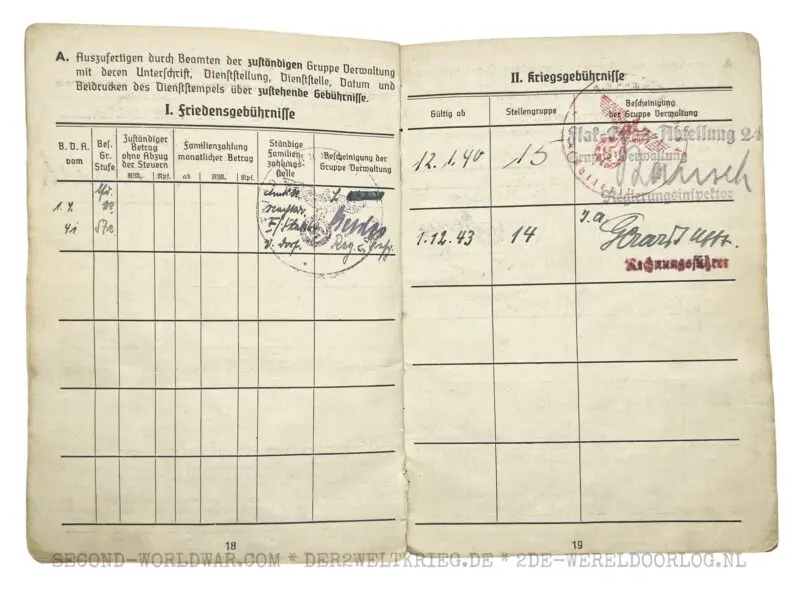 A. Auszufertigen durch Beamten der zuständigen Gruppe Verwaltung
mit deren Unterschrift, Dienststellung, Dienststelle, Datum und
Beidrucken des Dienststempels über zustehende Gebührnisse.
I. Friedensgebührnisse
B. D. A. vom
Bes. Gr. Stufe
Zuständiger Betrag ohne Abzug der Steuern
RM. Rpf.
Familienzahlung monatlicher Betrag
ab RM. Rpf.
Ständige Familienzahlungsstelle
Bescheinigung der Gruppe Verwaltung
18
II. Kriegsgebührnisse
Gültig ab
Stellengruppe
Bescheinigung der Gruppe Verwaltung
12.1.40 15
Gruppe Verwaltung
Regierungsinspektor
1.12.43 14
Rechnungsführer
19
SECOND-WORLDWAR.COM * DER2WELTKRIEG.DE * 2DE-WERELDOORLOG.NL